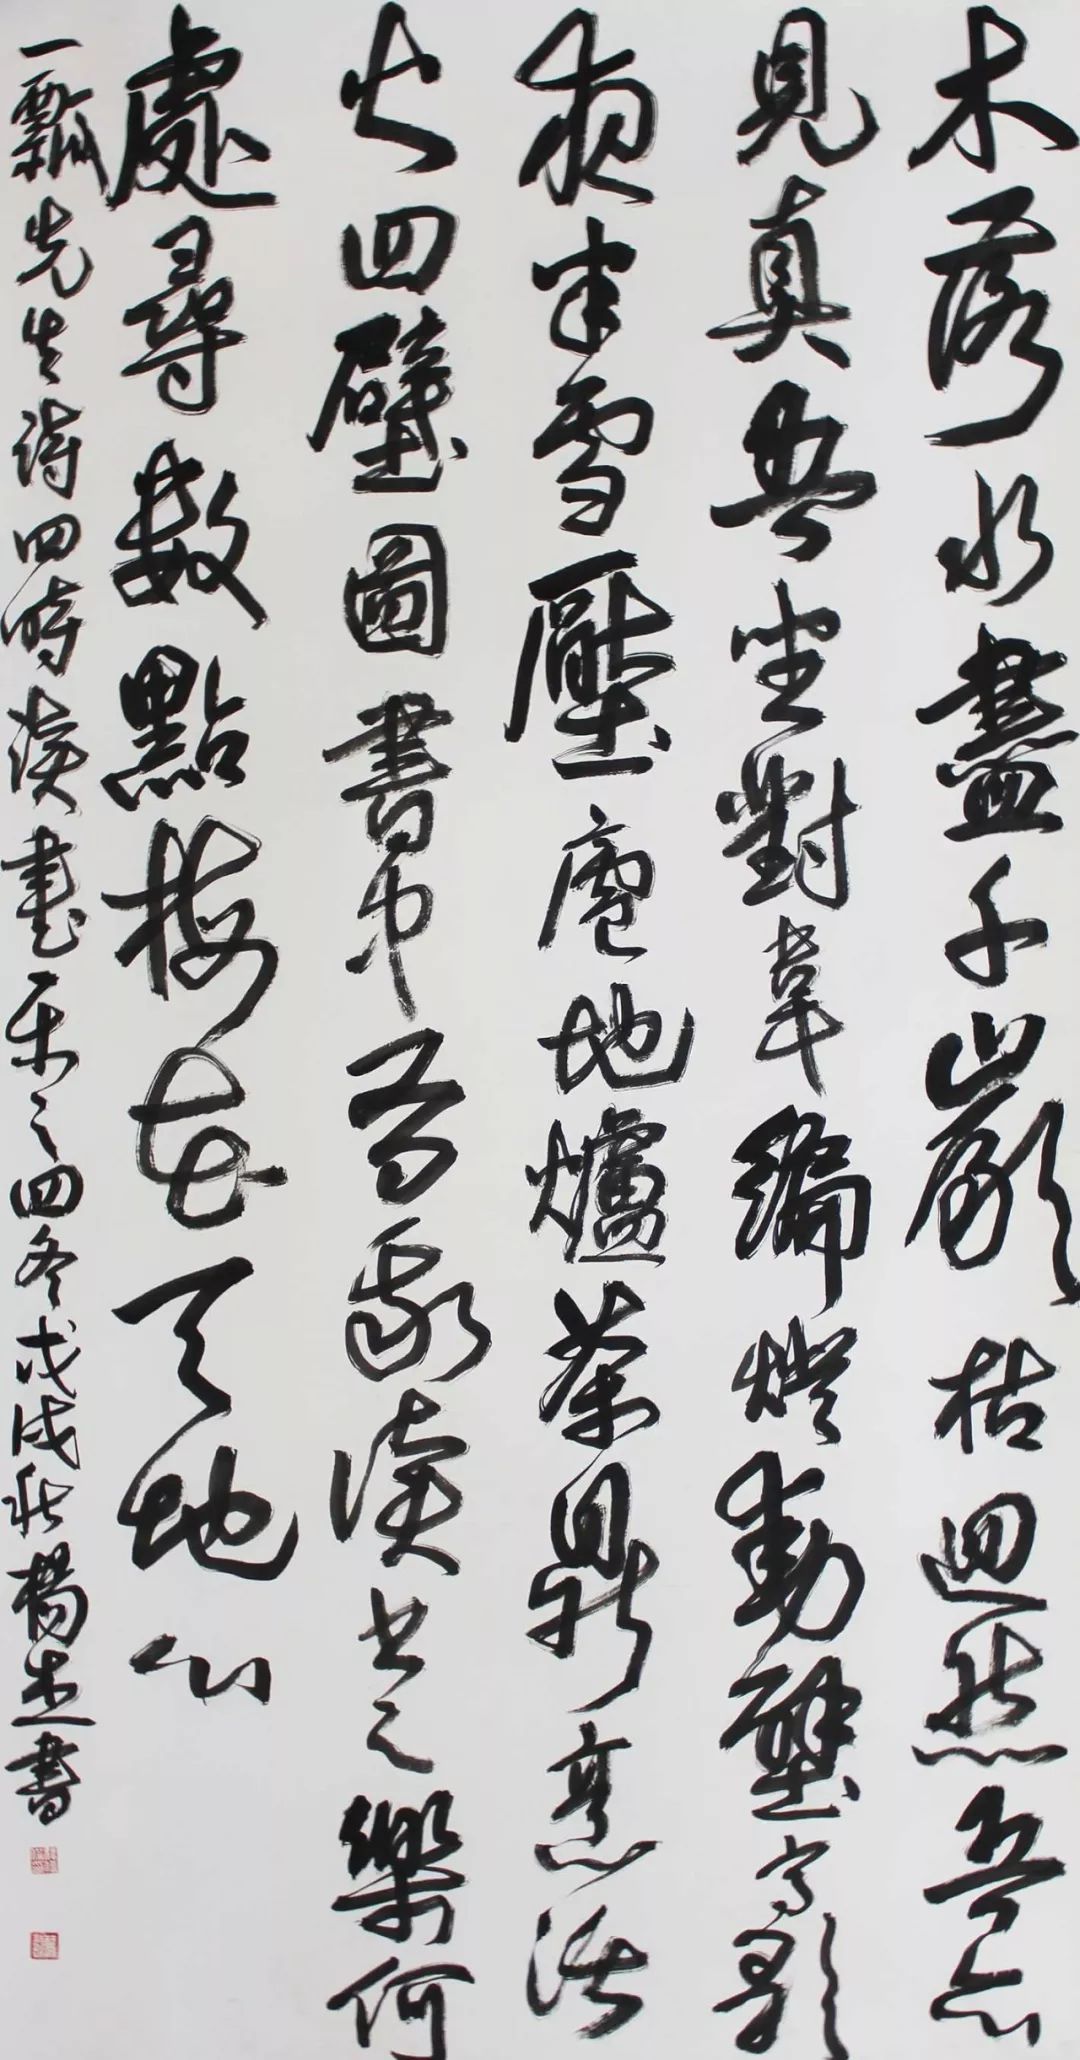 木落水盡千巖枯迴然吾亦
見真吾坐對韋編燈動壁高歌
夜半雪壓廬地爐茶鼎烹活
火四壁圖書中有我讀書之樂何
處尋數點梅花天地心
一瓢先生詩四時讀書樂之四冬戊戌秋楊杰書